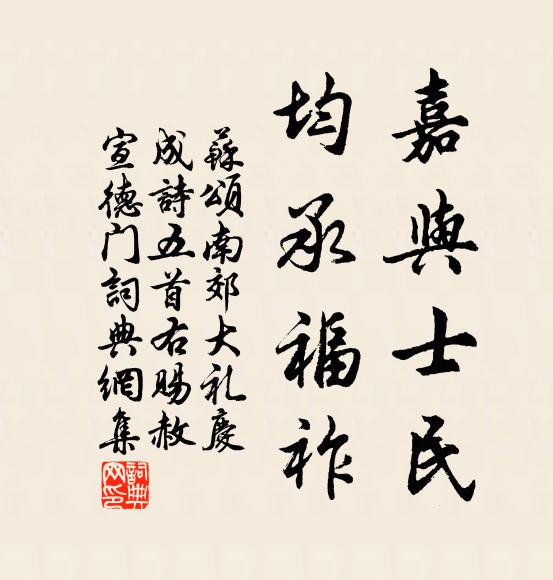 嘉與士民
均承福祚
蘇頌南郊大礼慶
成詩五首右賜赦
宣德门詞典網集
詞典
网印